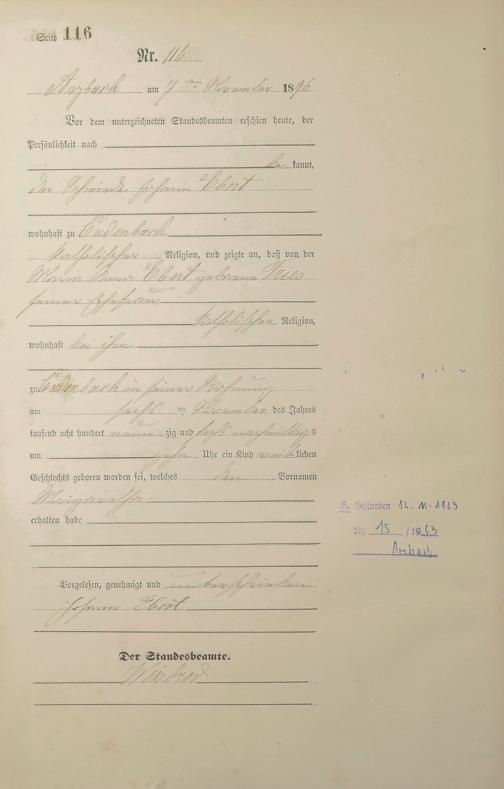 Seite 116
Nr. 116
Arzbach am 7ten November 1896
Vor dem unterzeichneten Standesbeamten erschien heute, der
Persönlichkeit nach
be kannt,
der Schmiede Johann Ebert
wohnhaft zu Cadenbach
katholischer Religion, und zeigte an, daß von der
Maria Anna Ebert geborene
seiner Ehefrau
katholischer Religion,
wohnhaft bei ihm
zu Cadenbach in seiner Wohnung
am sechsten November des Jahres
tausend acht hundert neun zig und sechs nachmittags
um zehn Uhr ein Kind weiblichen
Geschlechts geboren worden sei, welches den Vornamen
Margaretha
erhalten habe
Vorgelesen, genehmigt und unterschrieben
Johann Ebert
Der Standesbeamte.
G. Gestorben 12. 11. 1963
Nr. 15 / 1963
Arzbach